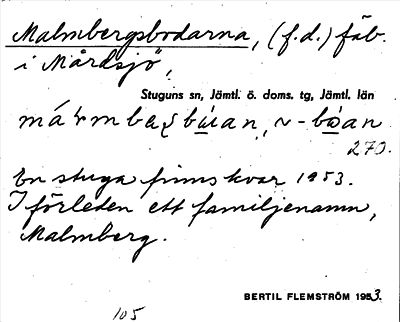 Malmbergsbodarna, (f.d.) fäb.
i Mårdsjö,
Stuguns sn, Jämtl. ö. doms. tg, Jämtl. län
270.
En stuga finns kvar 1953.
I förleden ett familjenamn,
Malmberg.
BERTIL FLEMSTRÖM 1953.
105